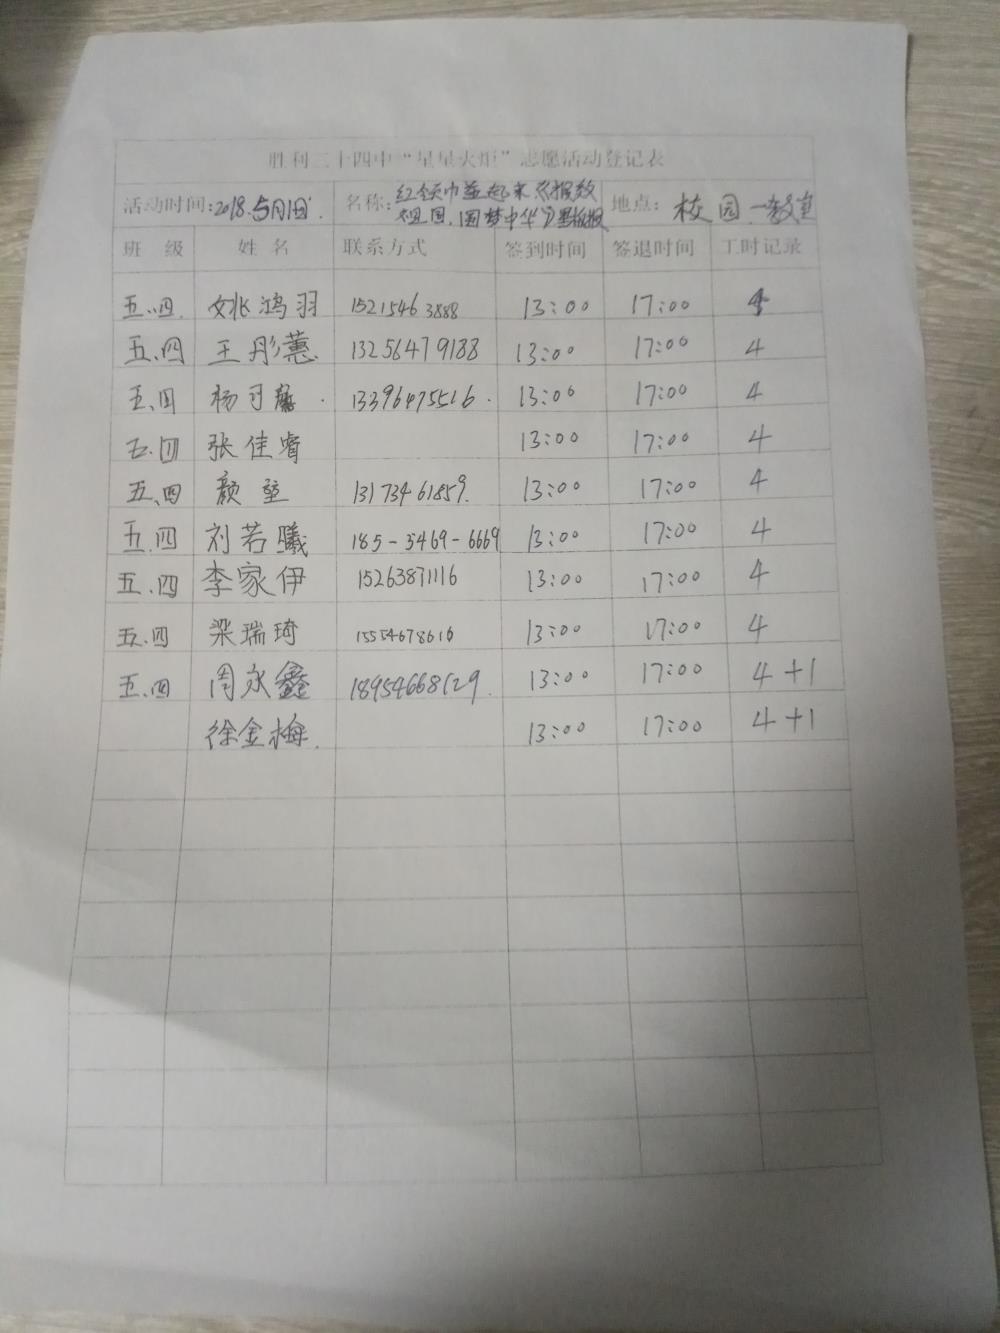 胜利二十四中“星星火炬”志愿活动登记表
活动时间:2018.5月1日. 名称:红领巾益起来《报效祖国,圆梦中华》黑板报 地点:校园 教室
班 级 姓 名 联系方式 签到时间 签退时间 工时记录
五.四 姚鸿羽 15215463888 13:00 17:00 4
五.四 王彤蕙 13256479188 13:00 17:00 4
五.四 杨可馨 13396475516 13:00 17:00 4
五.四 张佳睿 13:00 17:00 4
五.四 颜 13173461859 13:00 17:00 4
五.四 刘若曦 185-5469-6669 13:00 17:00 4
五.四 李家伊 15263871116 13:00 17:00 4
五.四 梁瑞琦 15554678616 13:00 17:00 4
五.四 周永鑫 18954668129 13:00 17:00 4+1
徐金梅 13:00 17:00 4+1